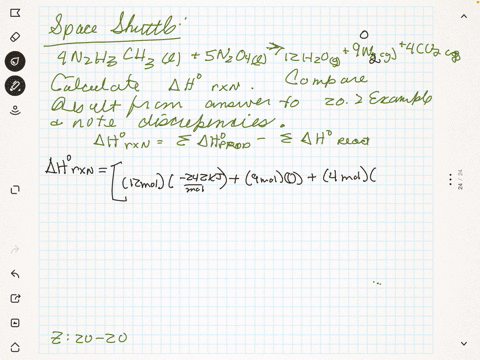 Space Shuttle:
0
9N2H3CH3(l) + 5N2O4(l) → 12H2O(g) + 9N2(g) + 4CO2(g)
Calculate ΔH°rxn. Compare
Result from answer to 20.2 Example
& note discrepencies.
ΔH°rxn = Σ ΔH°PROD - Σ ΔH°REACT
ΔH°rxn = [(12mol)(-242kJ/mol) + (9mol)(0) + (4mol)(
24 / 24
Z:20-20